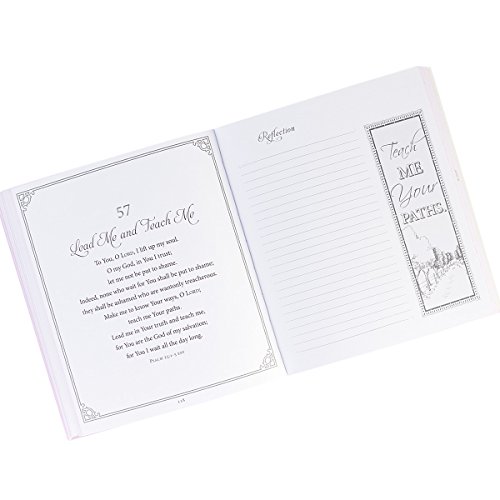 57
Lead Me and Teach Me
To You, O LORD, I lift up my soul.
O my God, in You I trust;
let me not be put to shame;
Indeed, none who wait for You shall be put to shame;
they shall be ashamed who are wantonly treacherous.
Make me to know Your ways, O LORD;
teach me Your paths.
Lead me in Your truth and teach me,
for You are the God of my salvation;
for You I wait all the day long.
PSALM 25:1-5
118
Reflection
Teach
ME
Your
PATHS.